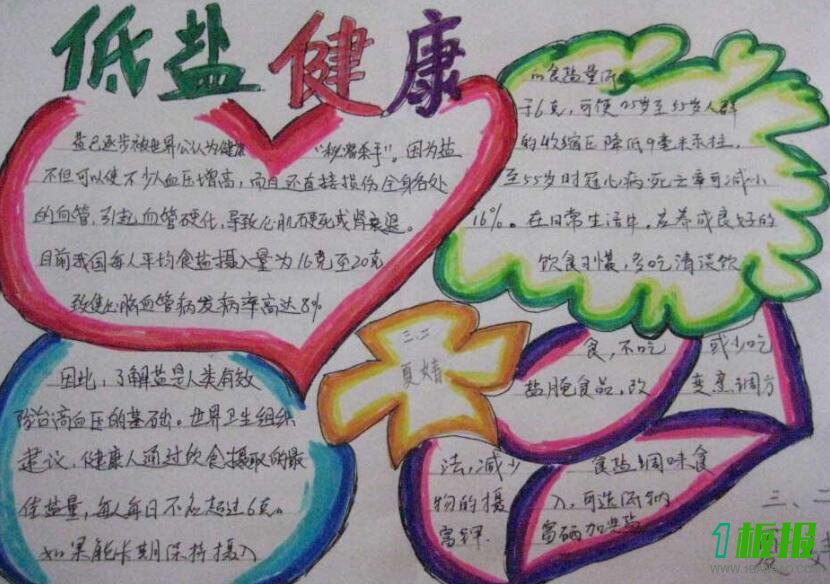 低盐健康
盐已逐步被世界公认为健康 "秘密杀手"。因为盐
不但可以使不少人血压增高,而且还直接损伤全身各处
的血管,引起血管硬化,导致心肌梗死或肾衰退。
目前我国每人平均食盐摄入量为16克至20克
致使心脑血管病发病率高达8%
因此,了解盐是人类有效
防治高血压的基础。世界卫生组织
建议,健康人通过饮食摄取的最
佳盐量,每人每日不应超过6克。
如果能长期保持摄入
的食盐量
于6克,可使25岁至55岁人群
的收缩压降低9毫米汞柱,
至55岁时冠心病死亡率可减小
16%。在日常生活中,应养成良好的
饮食习惯,多吃清淡饮
食,不吃 或少吃
盐腌食品,改 变烹调方
法,减少 食盐调味食
物的摄 入,可选
富锌 富硒加
三、二
夏婧
三、二
1板报